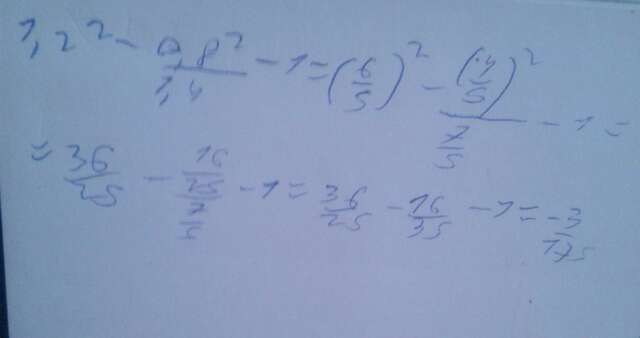 1,2² - 0,8²/1,4 - 1 = (6/5)² - (4/5)²/(7/5) - 1 =
= 36/25 - (16/25)/(7/5) - 1 = 36/25 - 16/35 - 1 = -3/175